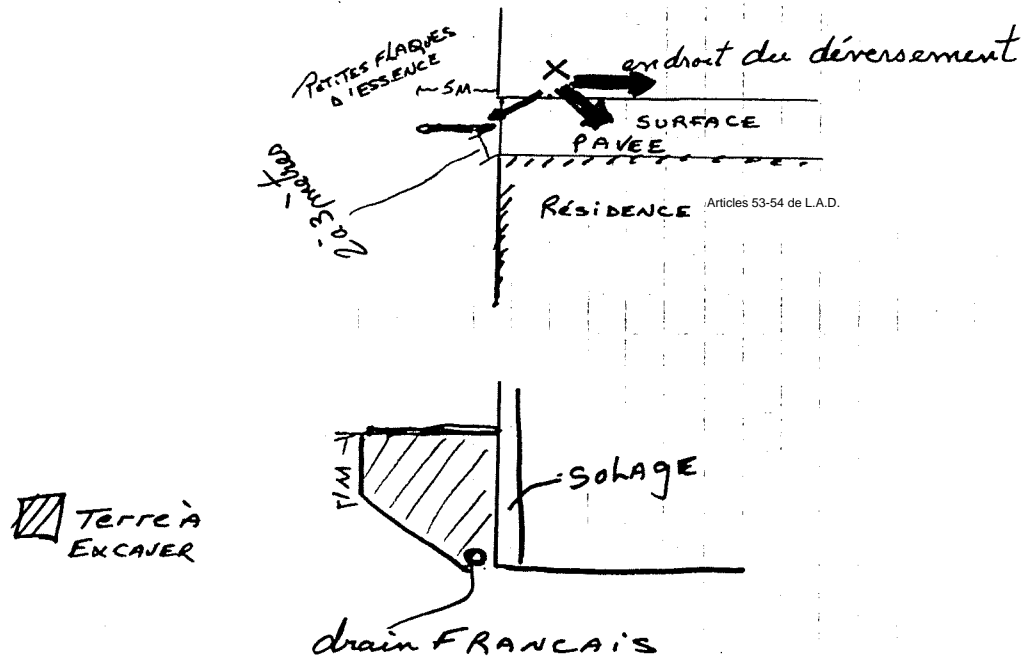 PETITES FLAQUES
D'ESSENCE
~ 5M ~
X
endroit du déversement
SURFACE
PAVEE
2 à 3 mètres
RÉSIDENCE
Articles 53-54 de L.A.D.
1M
SOLAGE
Terre à
EXCAVER
drain FRANCAIS